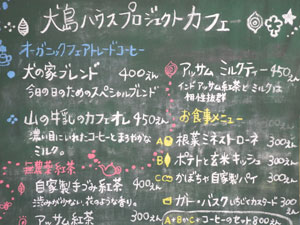 大島ハウスプロジェクトカフェ
オーガニックフェアトレードコーヒー
犬の家ブレンド 400えん
今日の日のためのスペシャルブレンド
山の牛乳のカフェオレ 450えん
濃い目にいれたコーヒーとまろやかな
ミルク。
無農薬紅茶
自家製手づみ紅茶 300えん
渋みが少ない、花のような香り。
アッサム紅茶 300えん
アッサム ミルクティー 450えん
インドアッサム紅茶とミルクは
相性抜群
お食事メニュー
A 根菜ミネストローネ 300えん
B ポテトと玄米キッシュ 300えん
C かぼちゃ自家製パイ 300えん
ガトーバスク いちじくカスタード 300えん
A+B or C+コーヒーのセット 800えん